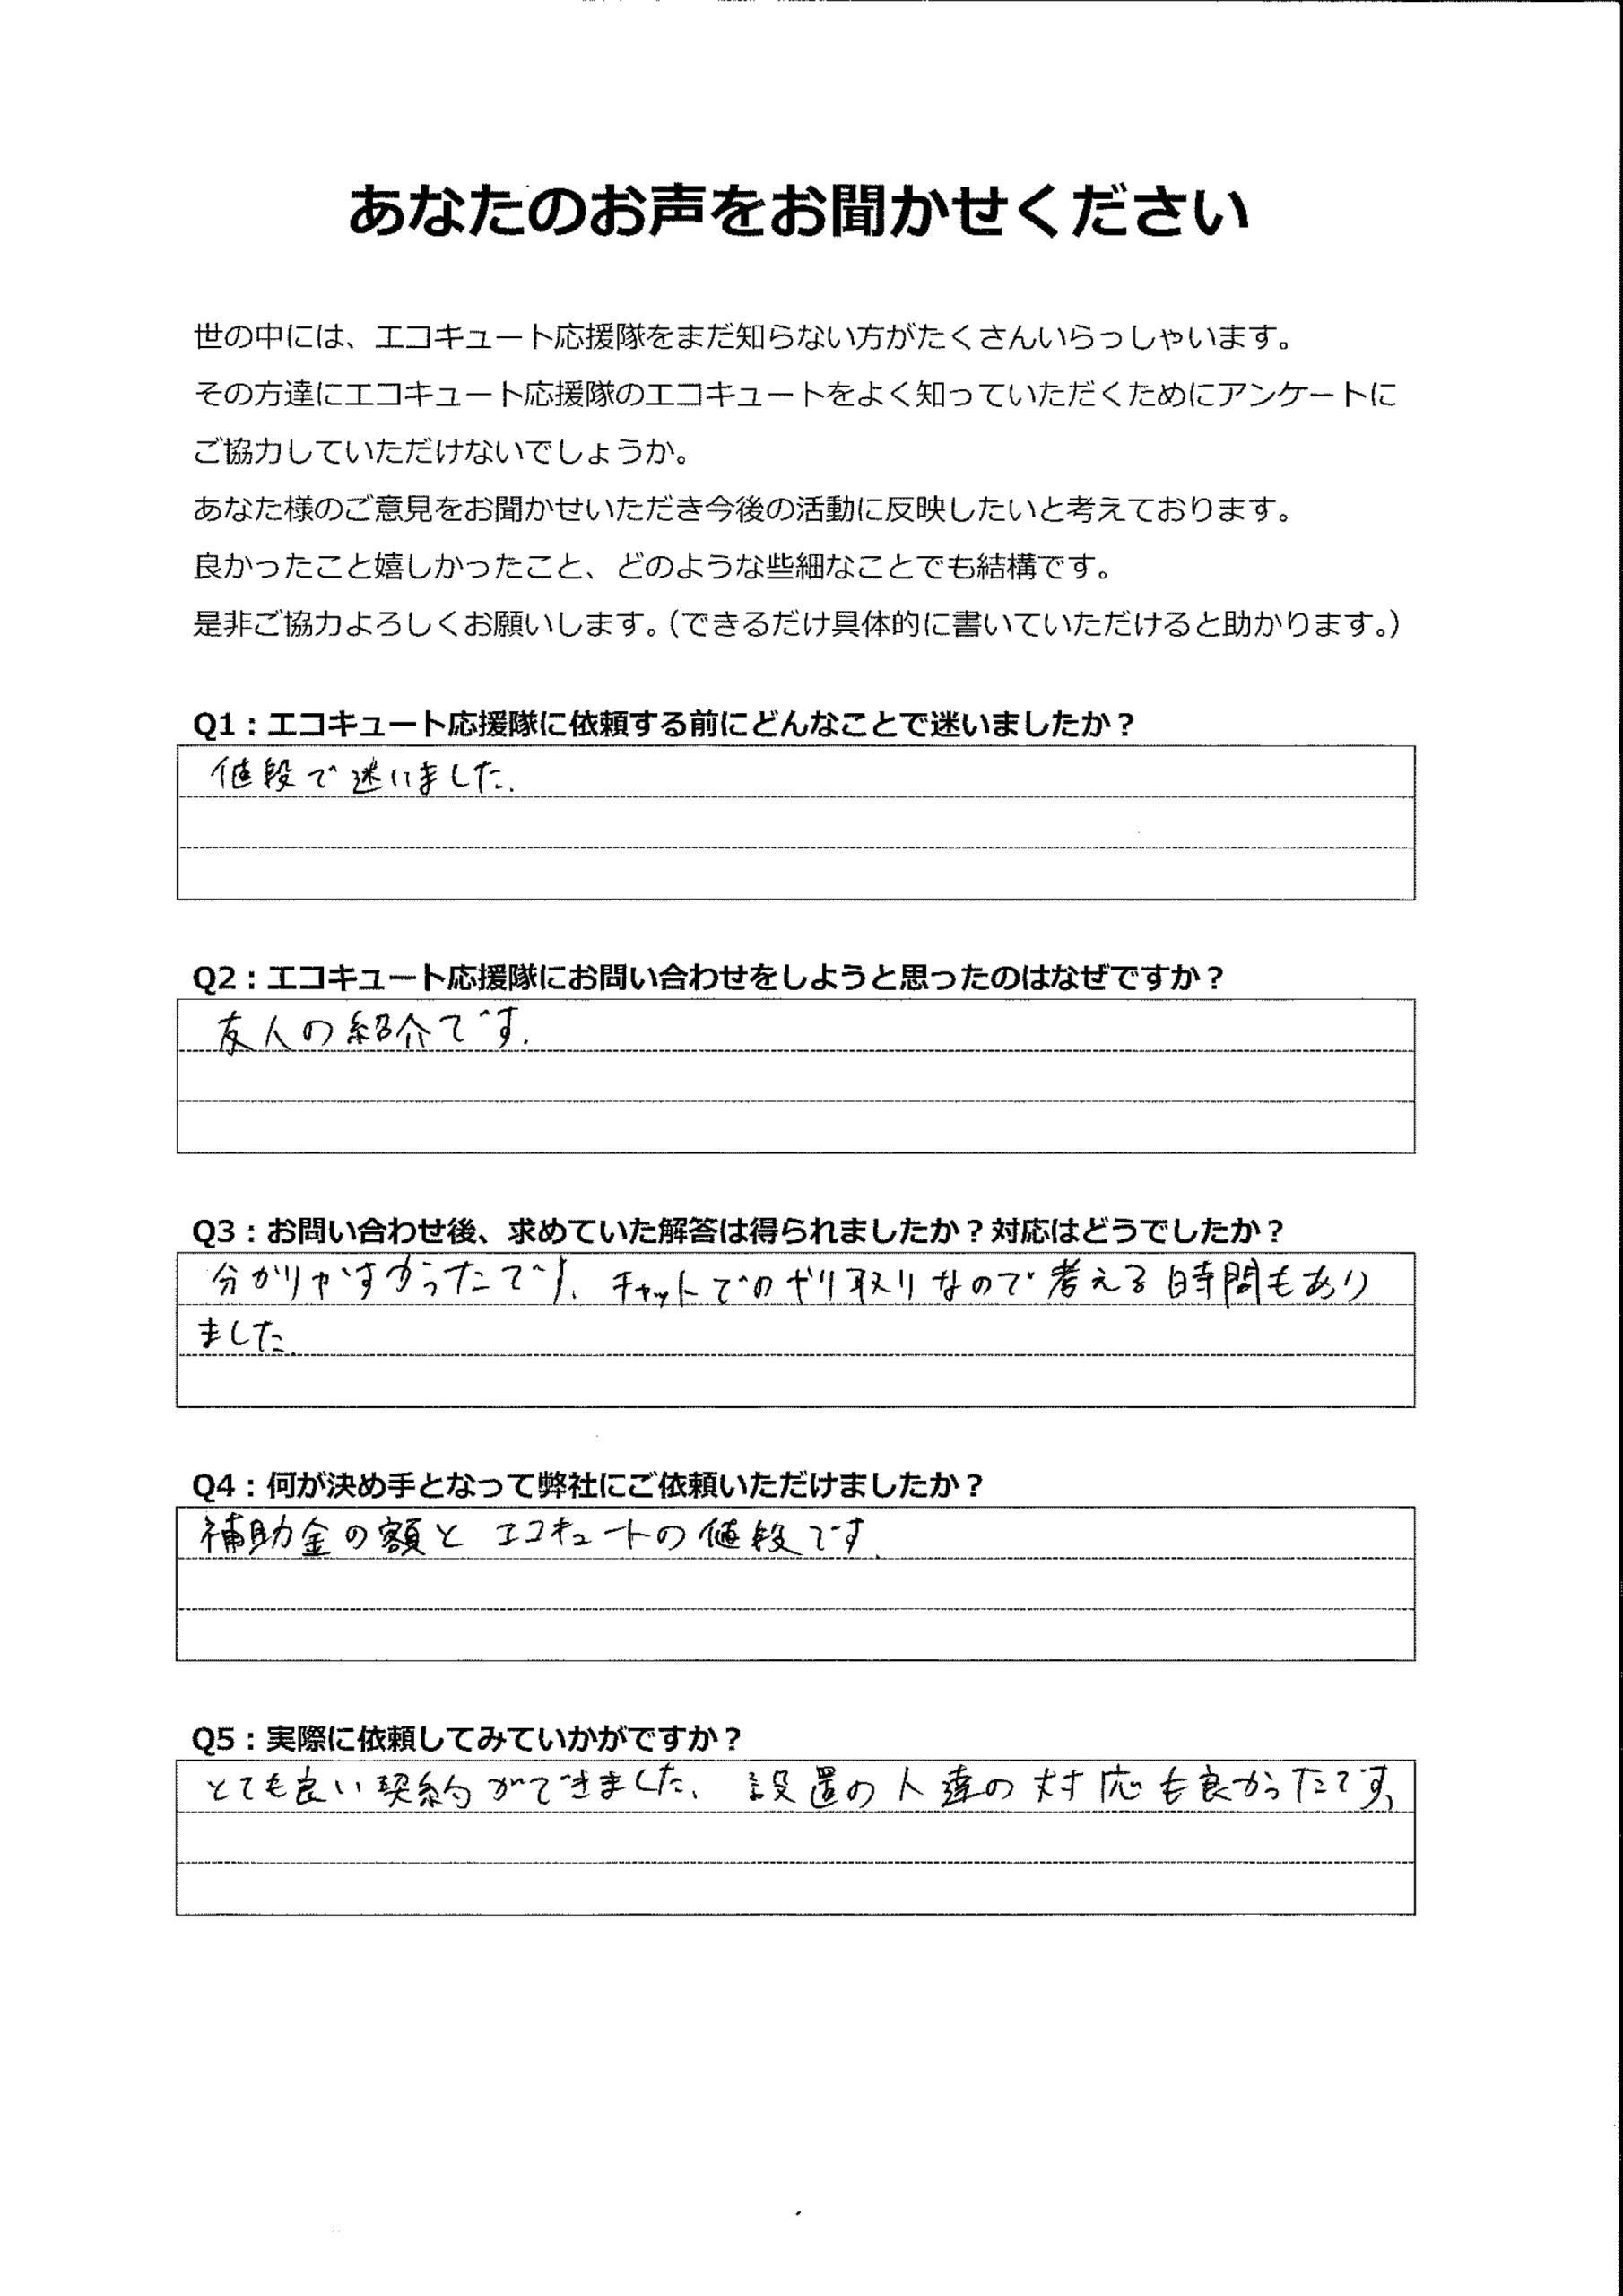 あなたのお声をお聞かせください
世の中には、エコキュート応援隊をまだ知らない方がたくさんいらっしゃいます。
その方達にエコキュート応援隊のエコキュートをよく知っていただくためにアンケートに
ご協力していただけないでしょうか。
あなた様のご意見をお聞かせいただき今後の活動に反映したいと考えております。
良かったこと嬉しかったこと、どのような些細なことでも結構です。
是非ご協力よろしくお願いします。（できるだけ具体的に書いていただけると助かります。）
Q1：エコキュート応援隊に依頼する前にどんなことで迷いましたか？
値段で迷いました.
Q2：エコキュート応援隊にお問い合わせをしようと思ったのはなぜですか？
友人の紹介です.
Q3：お問い合わせ後、求めていた解答は得られましたか？対応はどうでしたか？
分かりやすかったです. チャットでのやり取りなので考える時間もあり
ました.
Q4：何が決め手となって弊社にご依頼いただけましたか？
補助金の額と エコキュートの値段です.
Q5：実際に依頼してみていかがですか？
とても良い契約ができました. 設置の人達の対応も良かったです、